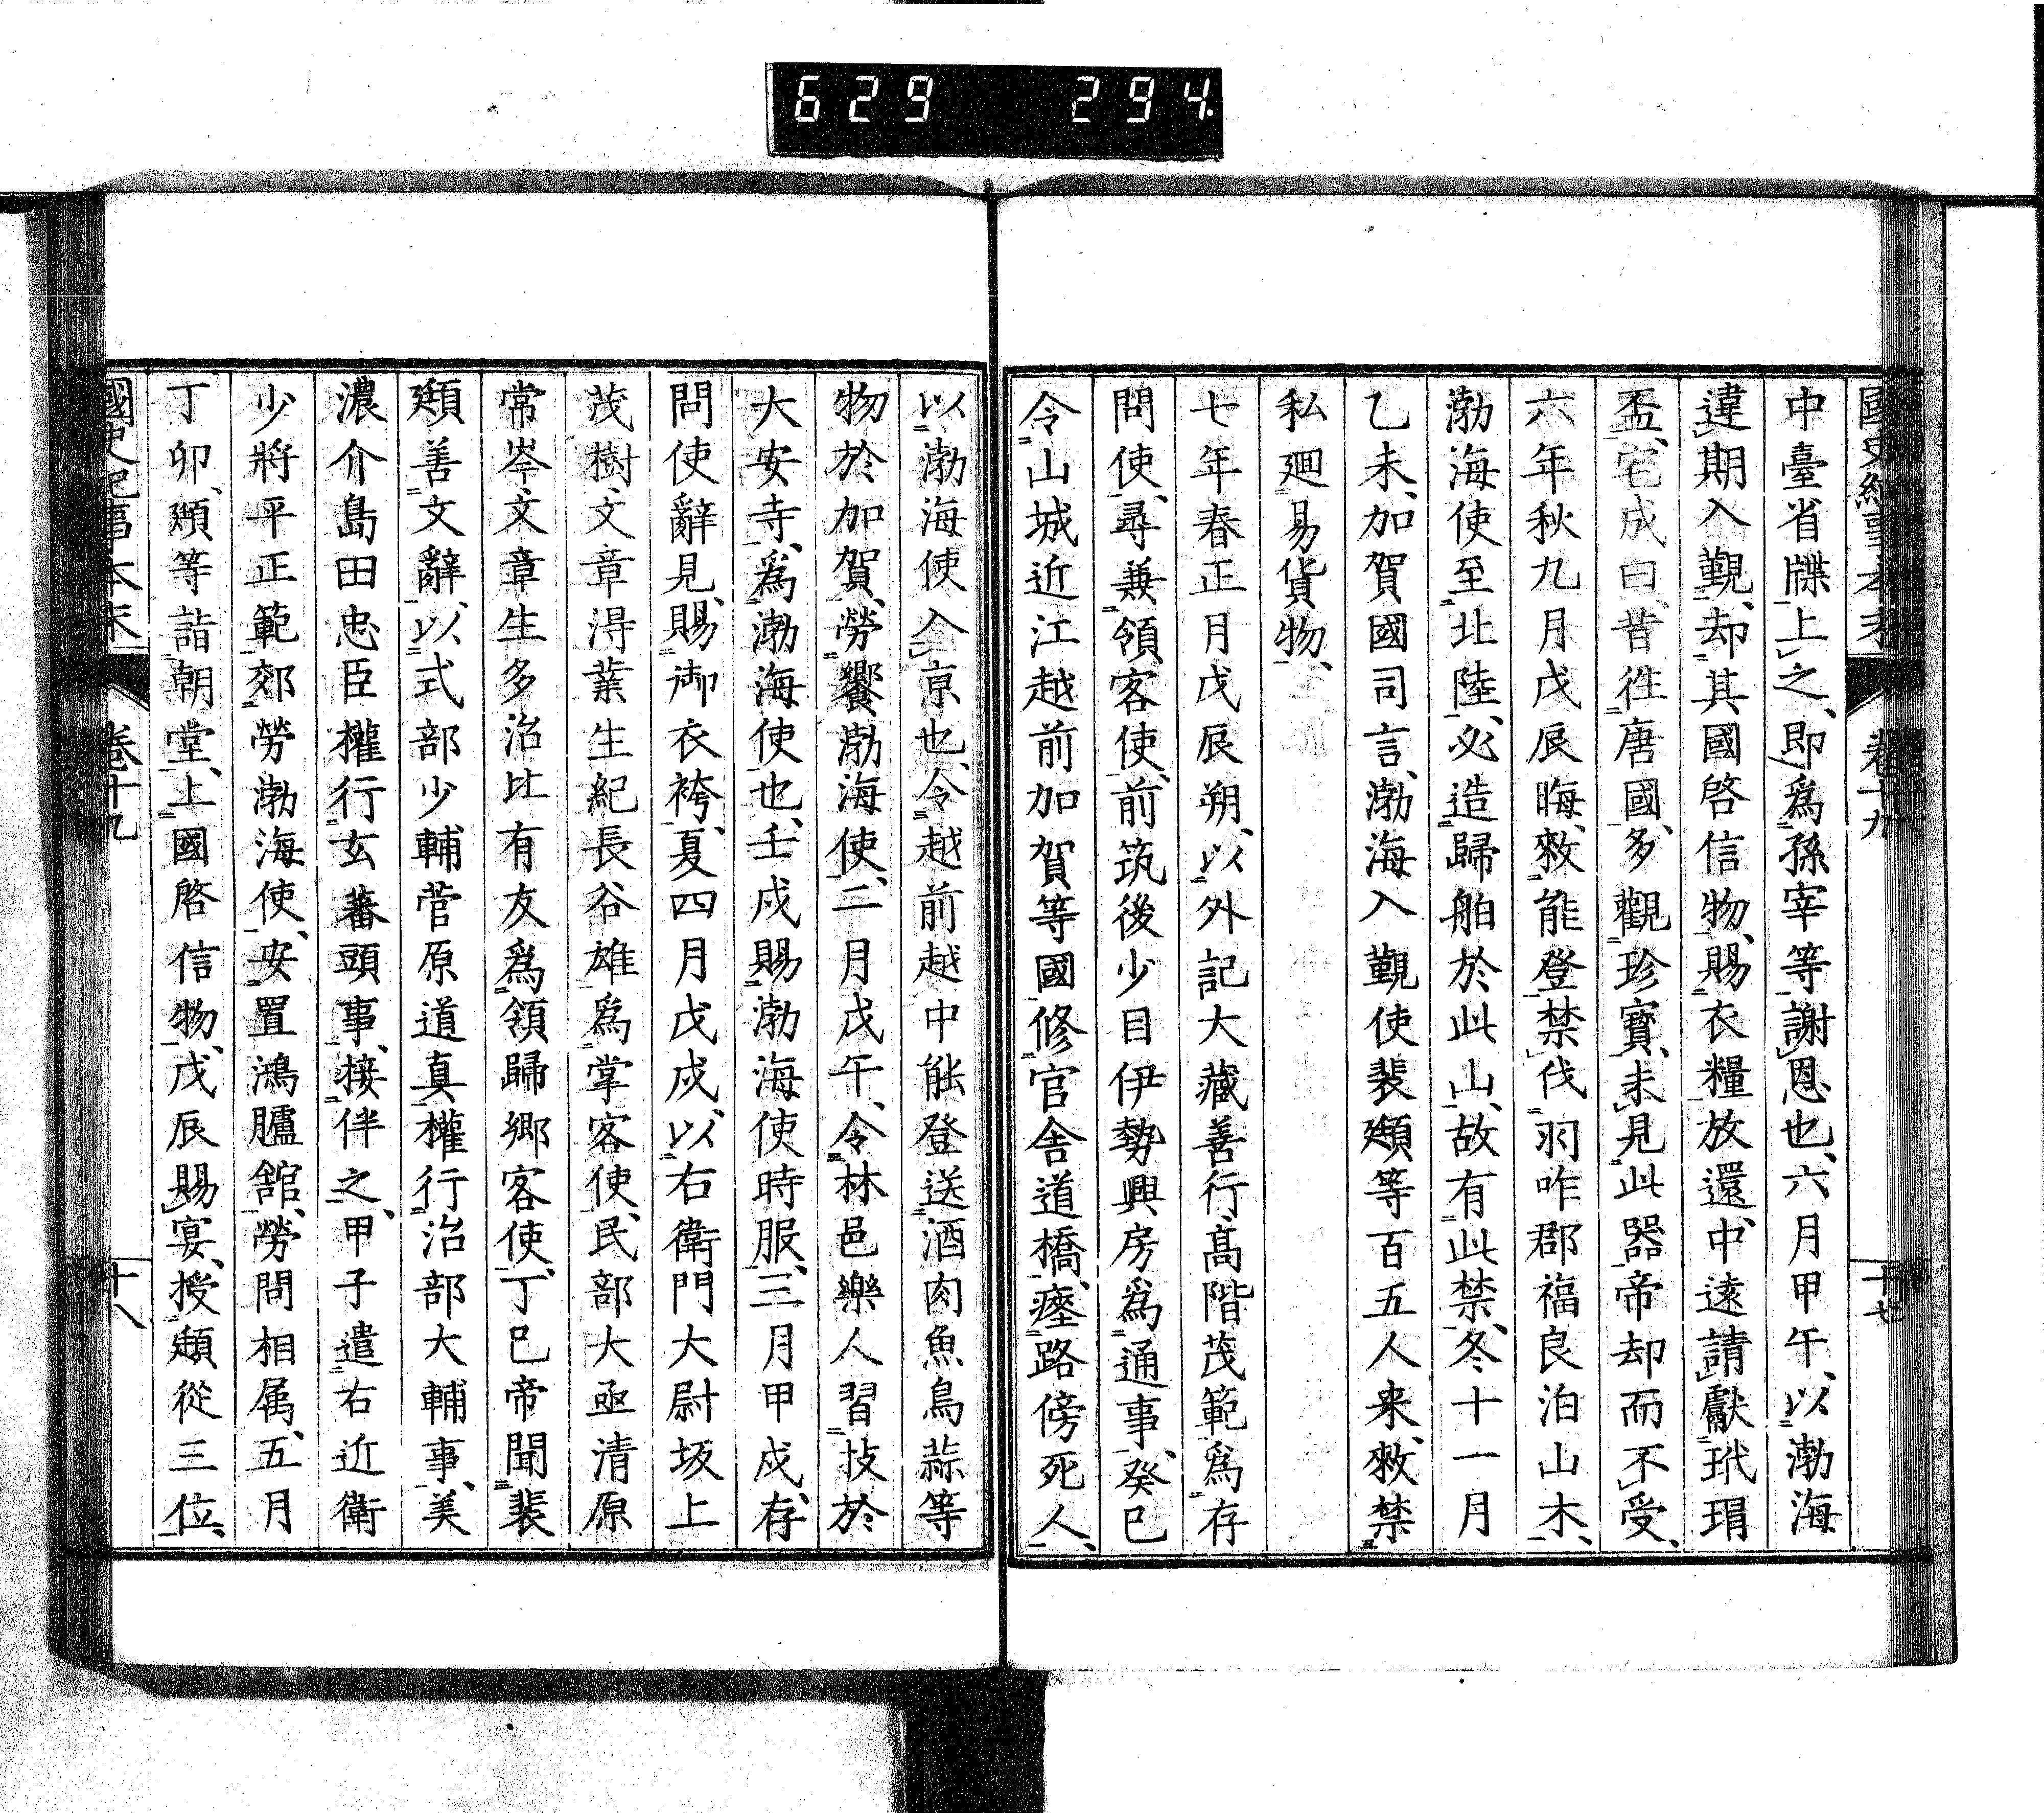 629 294
國史紀事本末 卷十九 十七
中臺省牒上之、即爲孫宰等謝恩也、六月甲午、以渤海
違期入覲、却其國啓信物、賜衣糧放還、中遠請獻玳瑁
盃、宅成曰、昔徃唐國、多觀珍寶、未見此器帝却而不受、
六年秋九月戊辰晦、敕能登禁伐羽咋郡福良泊山木、
渤海使至北陸、必造歸舶於此山、故有此禁、冬十一月
乙未、加賀國司言、渤海入覲使裴頲等百五人来、敕禁
私廻易貨物、
七年春正月戊辰朔、以外記大藏善行、髙階茂範爲存
問使、尋兼領客使、前筑後少目伊勢興房爲通事、癸巳
令山城近江越前加賀等國修官舍道橋、瘞路傍死人、
以渤海使入京也、令越前越中能登送酒肉魚鳥蒜等
物於加賀、勞饗渤海使、二月戊午、令林邑樂人習技於
大安寺、爲渤海使也、壬戌賜渤海使時服、三月甲戌、存
問使辭見、賜御衣袴、夏四月戊戌、以右衛門大尉坂上
茂樹、文章得業生紀長谷雄爲掌客使、民部大亟清原
常岑、文章生多治比有友爲領歸郷客使、丁巳帝聞裴
頲善文辭、以式部少輔菅原道真權行治部大輔事、美
濃介島田忠臣權行玄蕃頭事、接伴之、甲子遣右近衛
少將平正範郊勞渤海使、安置鴻臚館、勞問相属、五月
丁卯、頲等詣朝堂、上國啓信物、戊辰賜宴、授頲從三位、
國史紀事本末 卷十九 十八